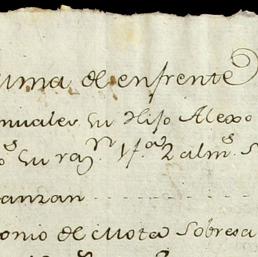 uma de enfrente
nuales su Hijo Alexo
os su razn 1fas 2 alms s
anzan
onio de Mota sobresa